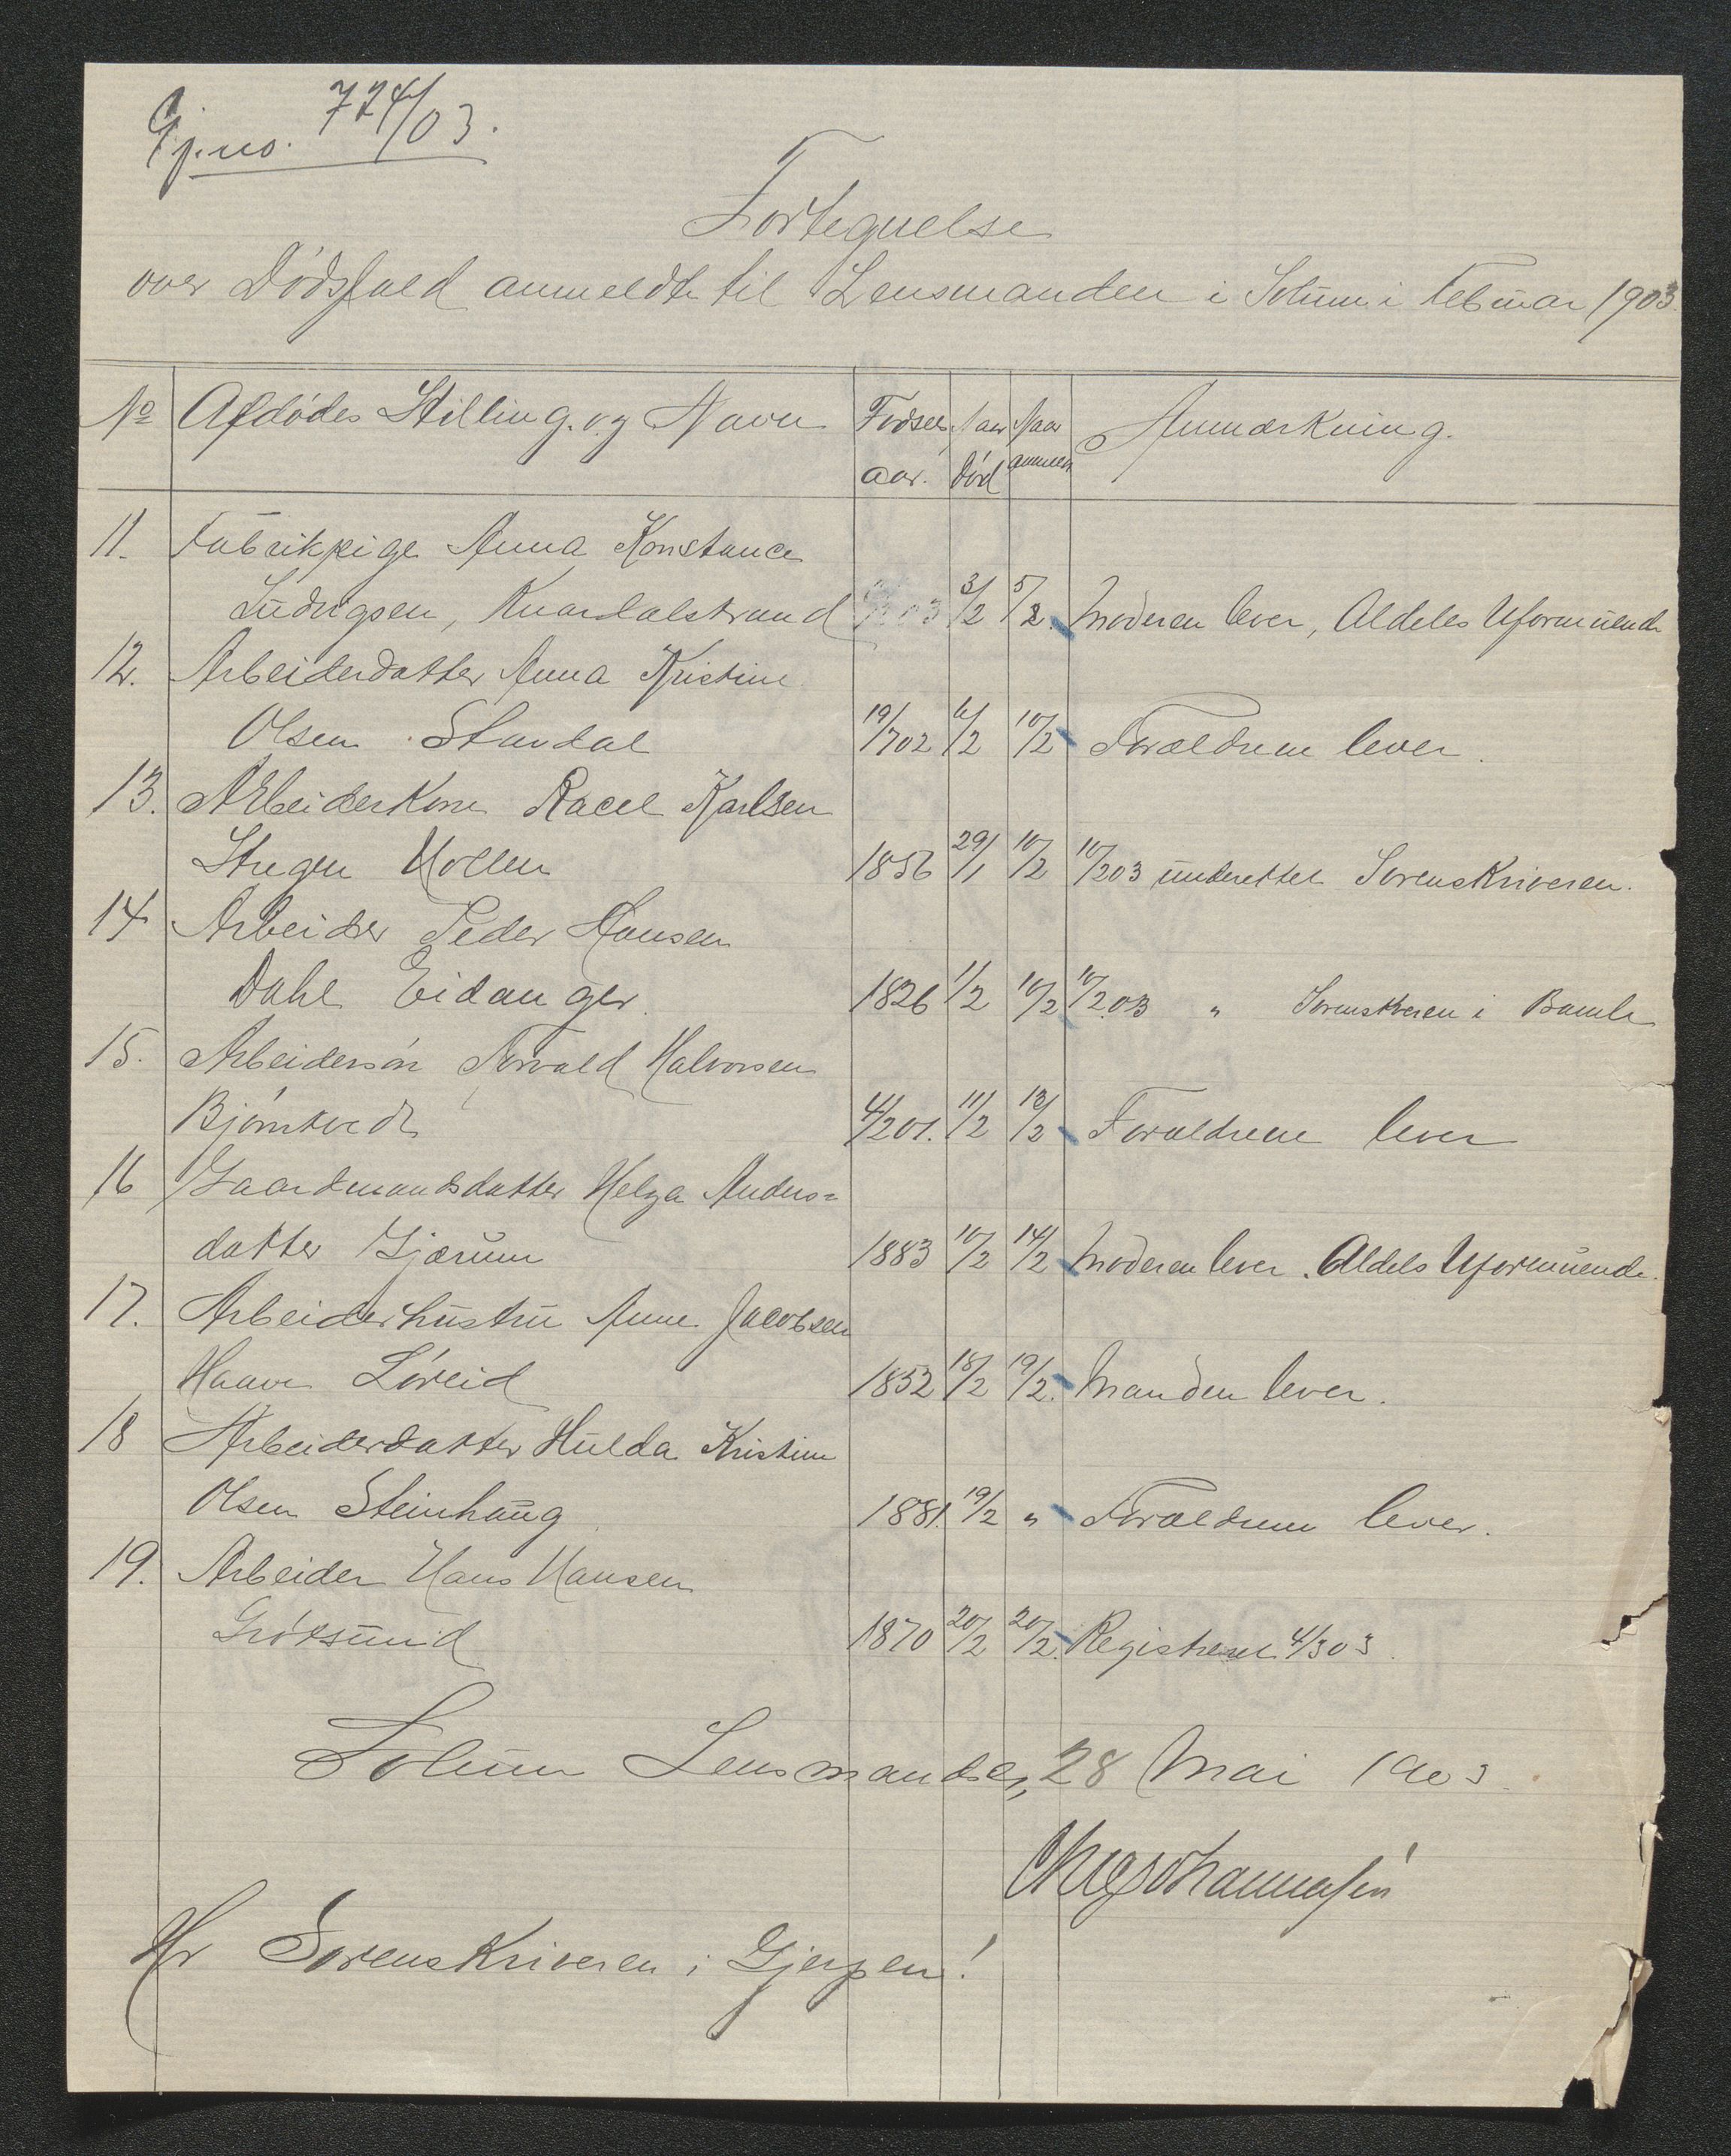 Gj.no. 724/03.
Fortegnelse
over Dødsfald anmeldte til Lensmanden i Solum i Februar 1903.
No Afdødes Stilling og Navn Fødsels aar. Naar Død Naar anmeldt Anmærkning.
11. Fabrikpige Anna Konstance
Ludvigsen, Knardalstrand 3/2 5/2. Moderen lever, Aldeles Uformuende
12. Arbeiderdatter Anna Kristine
Olsen Stavdal 19/702 6/2 10/2 Forældrene lever.
13. Arbeiderkone Racel Karlsen
Stugen Mollen 1856 29/1 10/2 10/203 underettet Sorenskriveren.
14 Arbeider Peder Hansen
Dahl Eidanger. 1826 1/2 10/2 10/203 " Sorenskriveren i Bamle
15. Arbeidersøn Torvald Halvorsen
Bjørntvedt 4/201. 11/2 13/2 Forældrene lever
16 Gaardmandsdatter Helga Anders=
datter Gjærum 1883 10/2 14/2 Moderen lever. Aldeles Uformuende.
17. Arbeiderhustru Anne Jacobsen
Haave Løveid 1852 18/2 19/2. Manden lever.
18 Arbeiderdatter Hulda Kristine
Olsen Steinhaug 1881. 19/2 " Forældrene lever.
19. Arbeider Hans Hansen
Grøtsund 1870 20/2 20/2. Registreret 4/303.
Solum Lensmandsb., 28 Mai 1903.
Hr Sorenskriveren i Gjerpen!